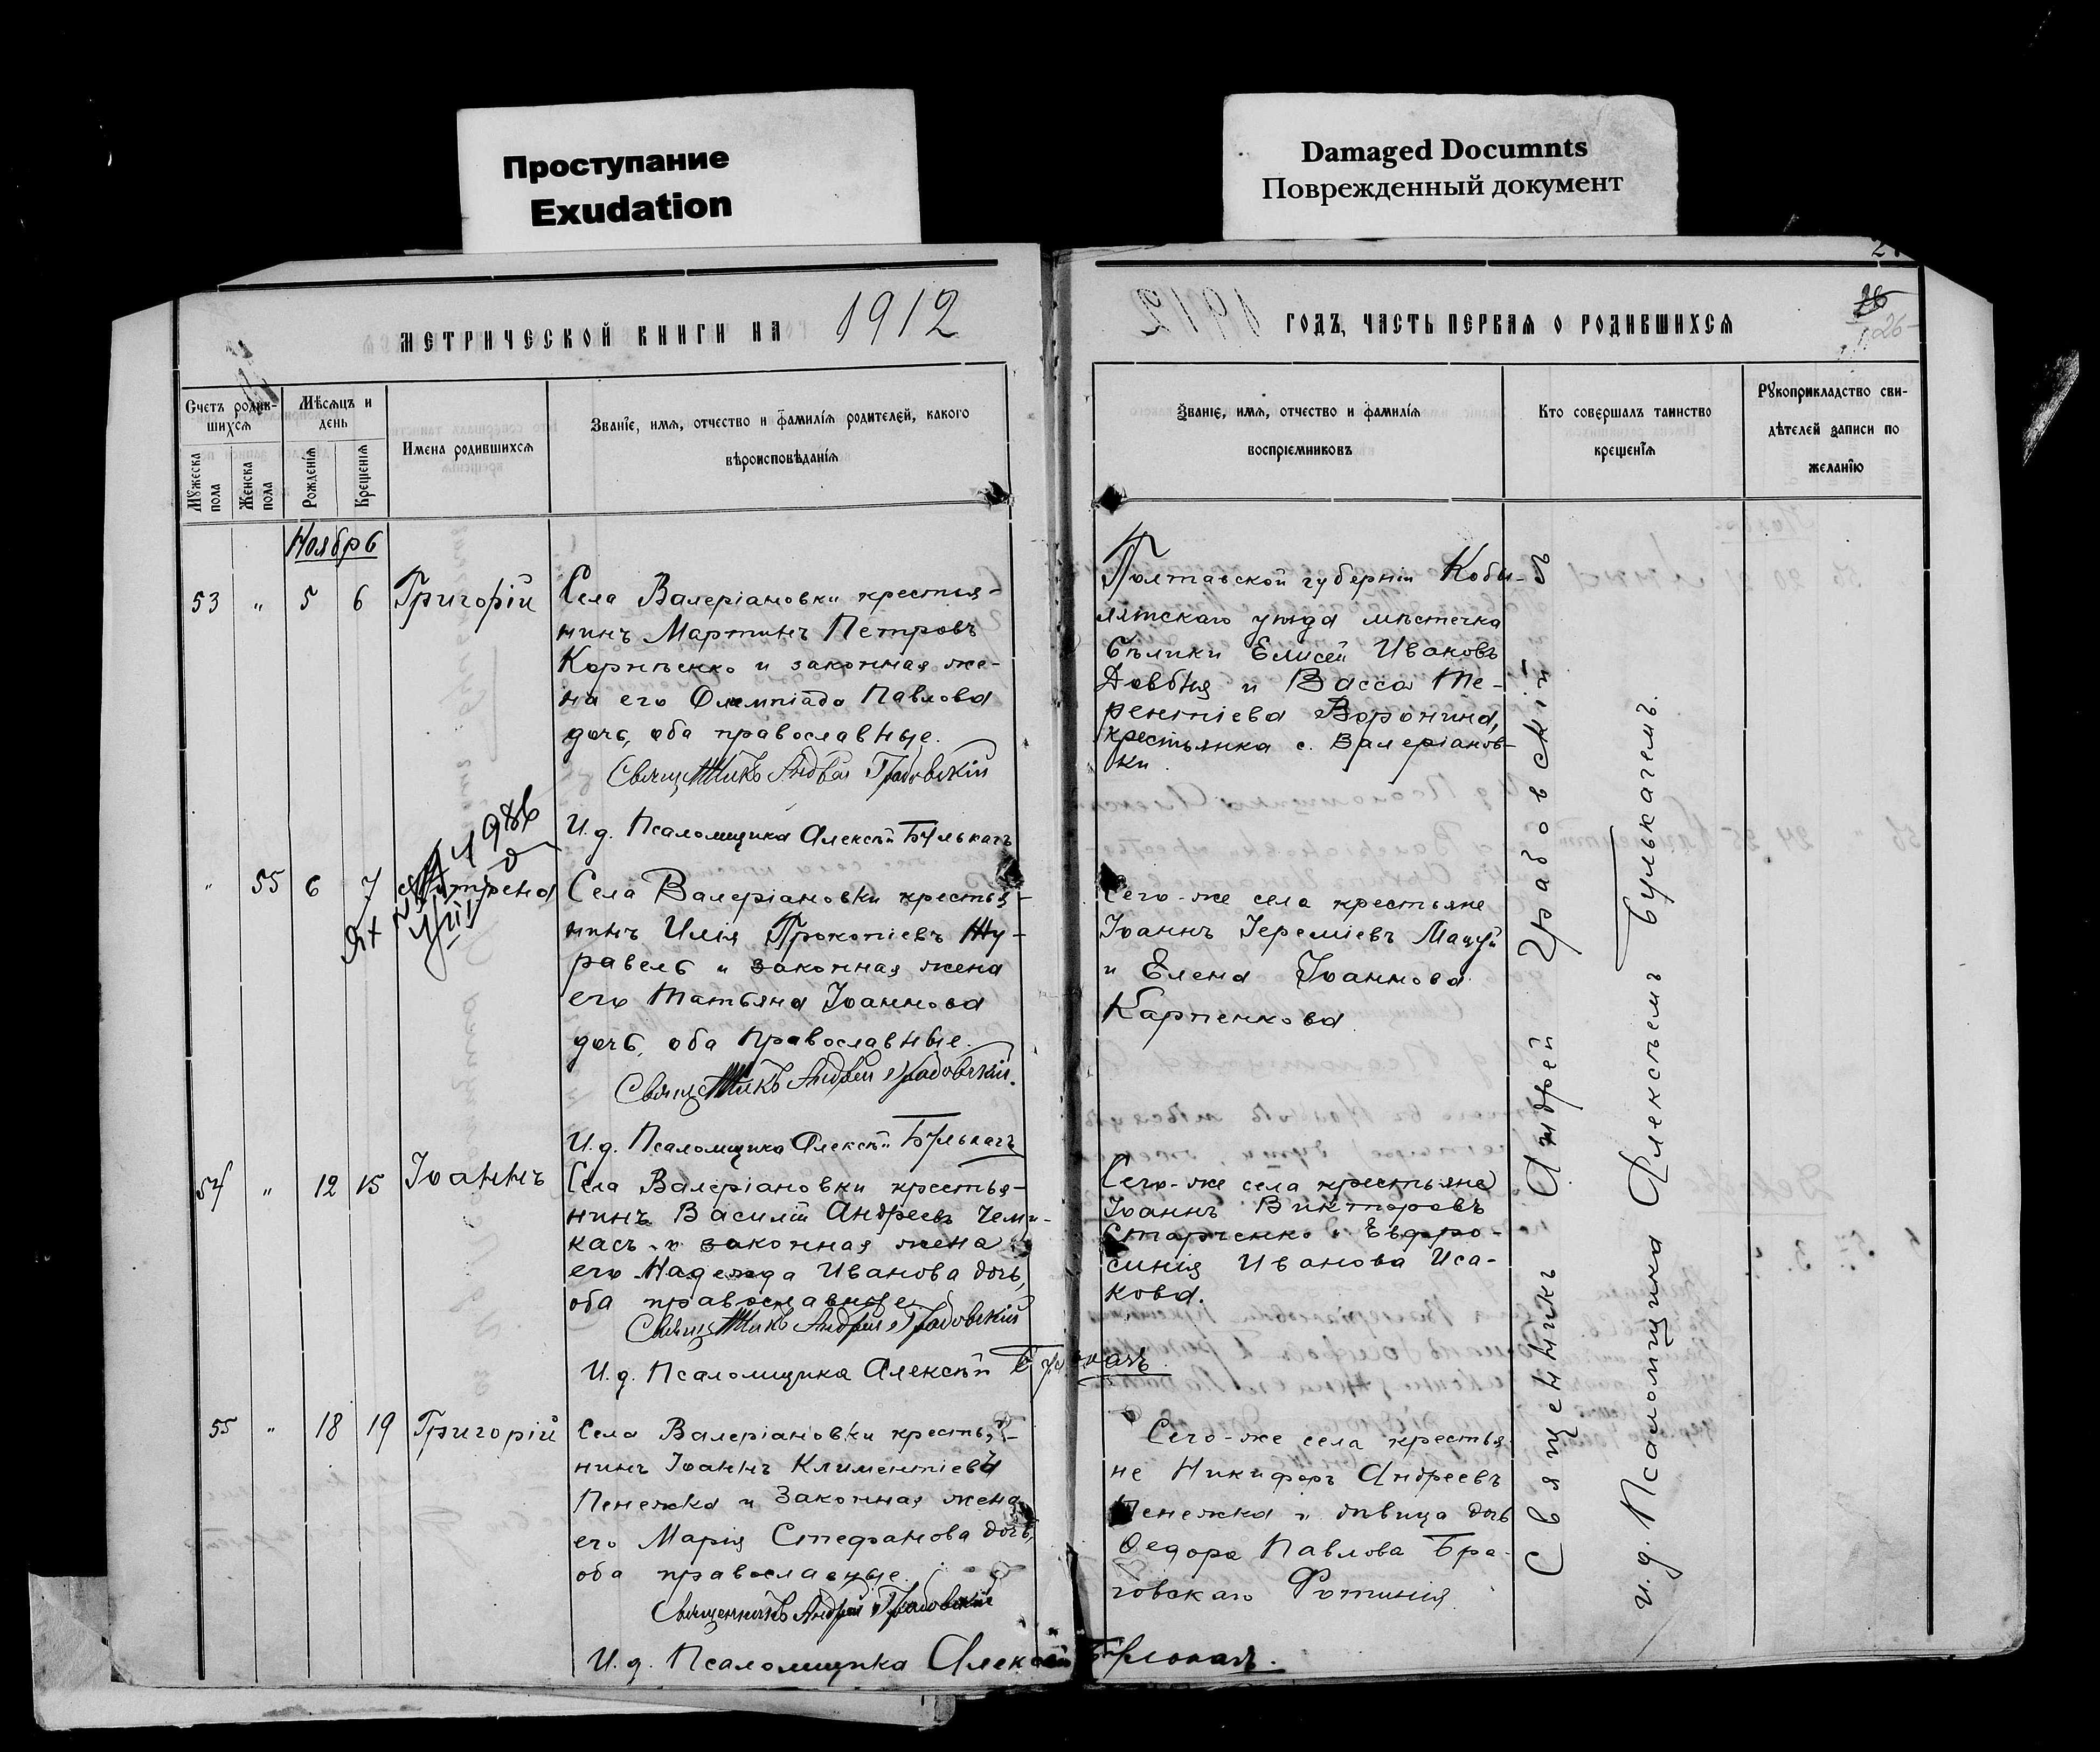 Проступание
Exudation
Damaged Documnts
Поврежденный документ
МЕТРИЧЕСКОЙ КНИГИ НА 1912
ГОДЪ, ЧАСТЬ ПЕРВАЯ О РОДИВШИХСЯ
26
Счетъ родив-
шихся
Мѣсяцъ и
день
Мужеска
пола
Женска
пола
Рожденія
Крещенія
Имена родившихся
Званіе, имя, отчество и фамилія родителей, какого
вѣроисповѣданія
Званіе, имя, отчество и фамилія
воспріемниковъ
Кто совершалъ таинство
крещенія
Рукоприкладство сви-
дѣтелей записи по
желанію
Ноябрь
53 " 5 6 Григорій
Села Валеріановки крестья-
нинъ Мартинъ Петровъ
Корнѣенко и законная же-
на его Олимпіада Павлова
дочь, оба православные.
Священникъ Андрей Грабовскій
И. д. Псаломщика Алексѣй Булькачъ
Полтавской губерніи Кобы-
ляцкаго уѣзда мѣстечка
Бѣлики Елисей Ивановъ
Довбня и Васса Те-
рентіева Воронина,
крестьянка с. Валеріанов-
ки.
" 55 6 7
Села Валеріановки крестья-
нинъ Илія Прокопіевъ Жу-
равель и законная жена
его Татьяна Іоаннова
дочь, оба Православные.
Священникъ Андрей Грабовскій.
И. д. Псаломщика Алексѣй Булькачъ
Сего-же села крестьяне
Іоаннъ Іереміевъ Мацуй
и Елена Іоаннова
Карпенкова.
54 " 12 15 Іоаннъ
Села Валеріановки крестья-
нинъ Василій Андреевъ Чеми-
касъ и законная жена
его Надежда Иванова дочь,
оба православные.
Священникъ Андрей Грабовскій
И. д. Псаломщика Алексѣй Булькачъ.
Сего-же села крестьяне
Іоаннъ Викторовъ
Старченко и Евфро-
синія Иванова Иса-
кова.
55 " 18 19 Григорій
Села Валеріановки крестья-
нинъ Іоаннъ Климентіевъ
Пенежка и Законная жена
его Марія Стефанова дочь,
оба православные.
Священникъ Андрей Грабовскій
И. д. Псаломщика Алексѣй Булькачъ.
Сего-же села крестья-
не Никифоръ Андреевъ
Пенежка и дѣвица дочь
Ѳедора Павлова Бра-
говскаго Фотинія.
Священникъ Андрей Грабовскій
И. д. Псаломщика Алексѣемъ Булькачемъ.